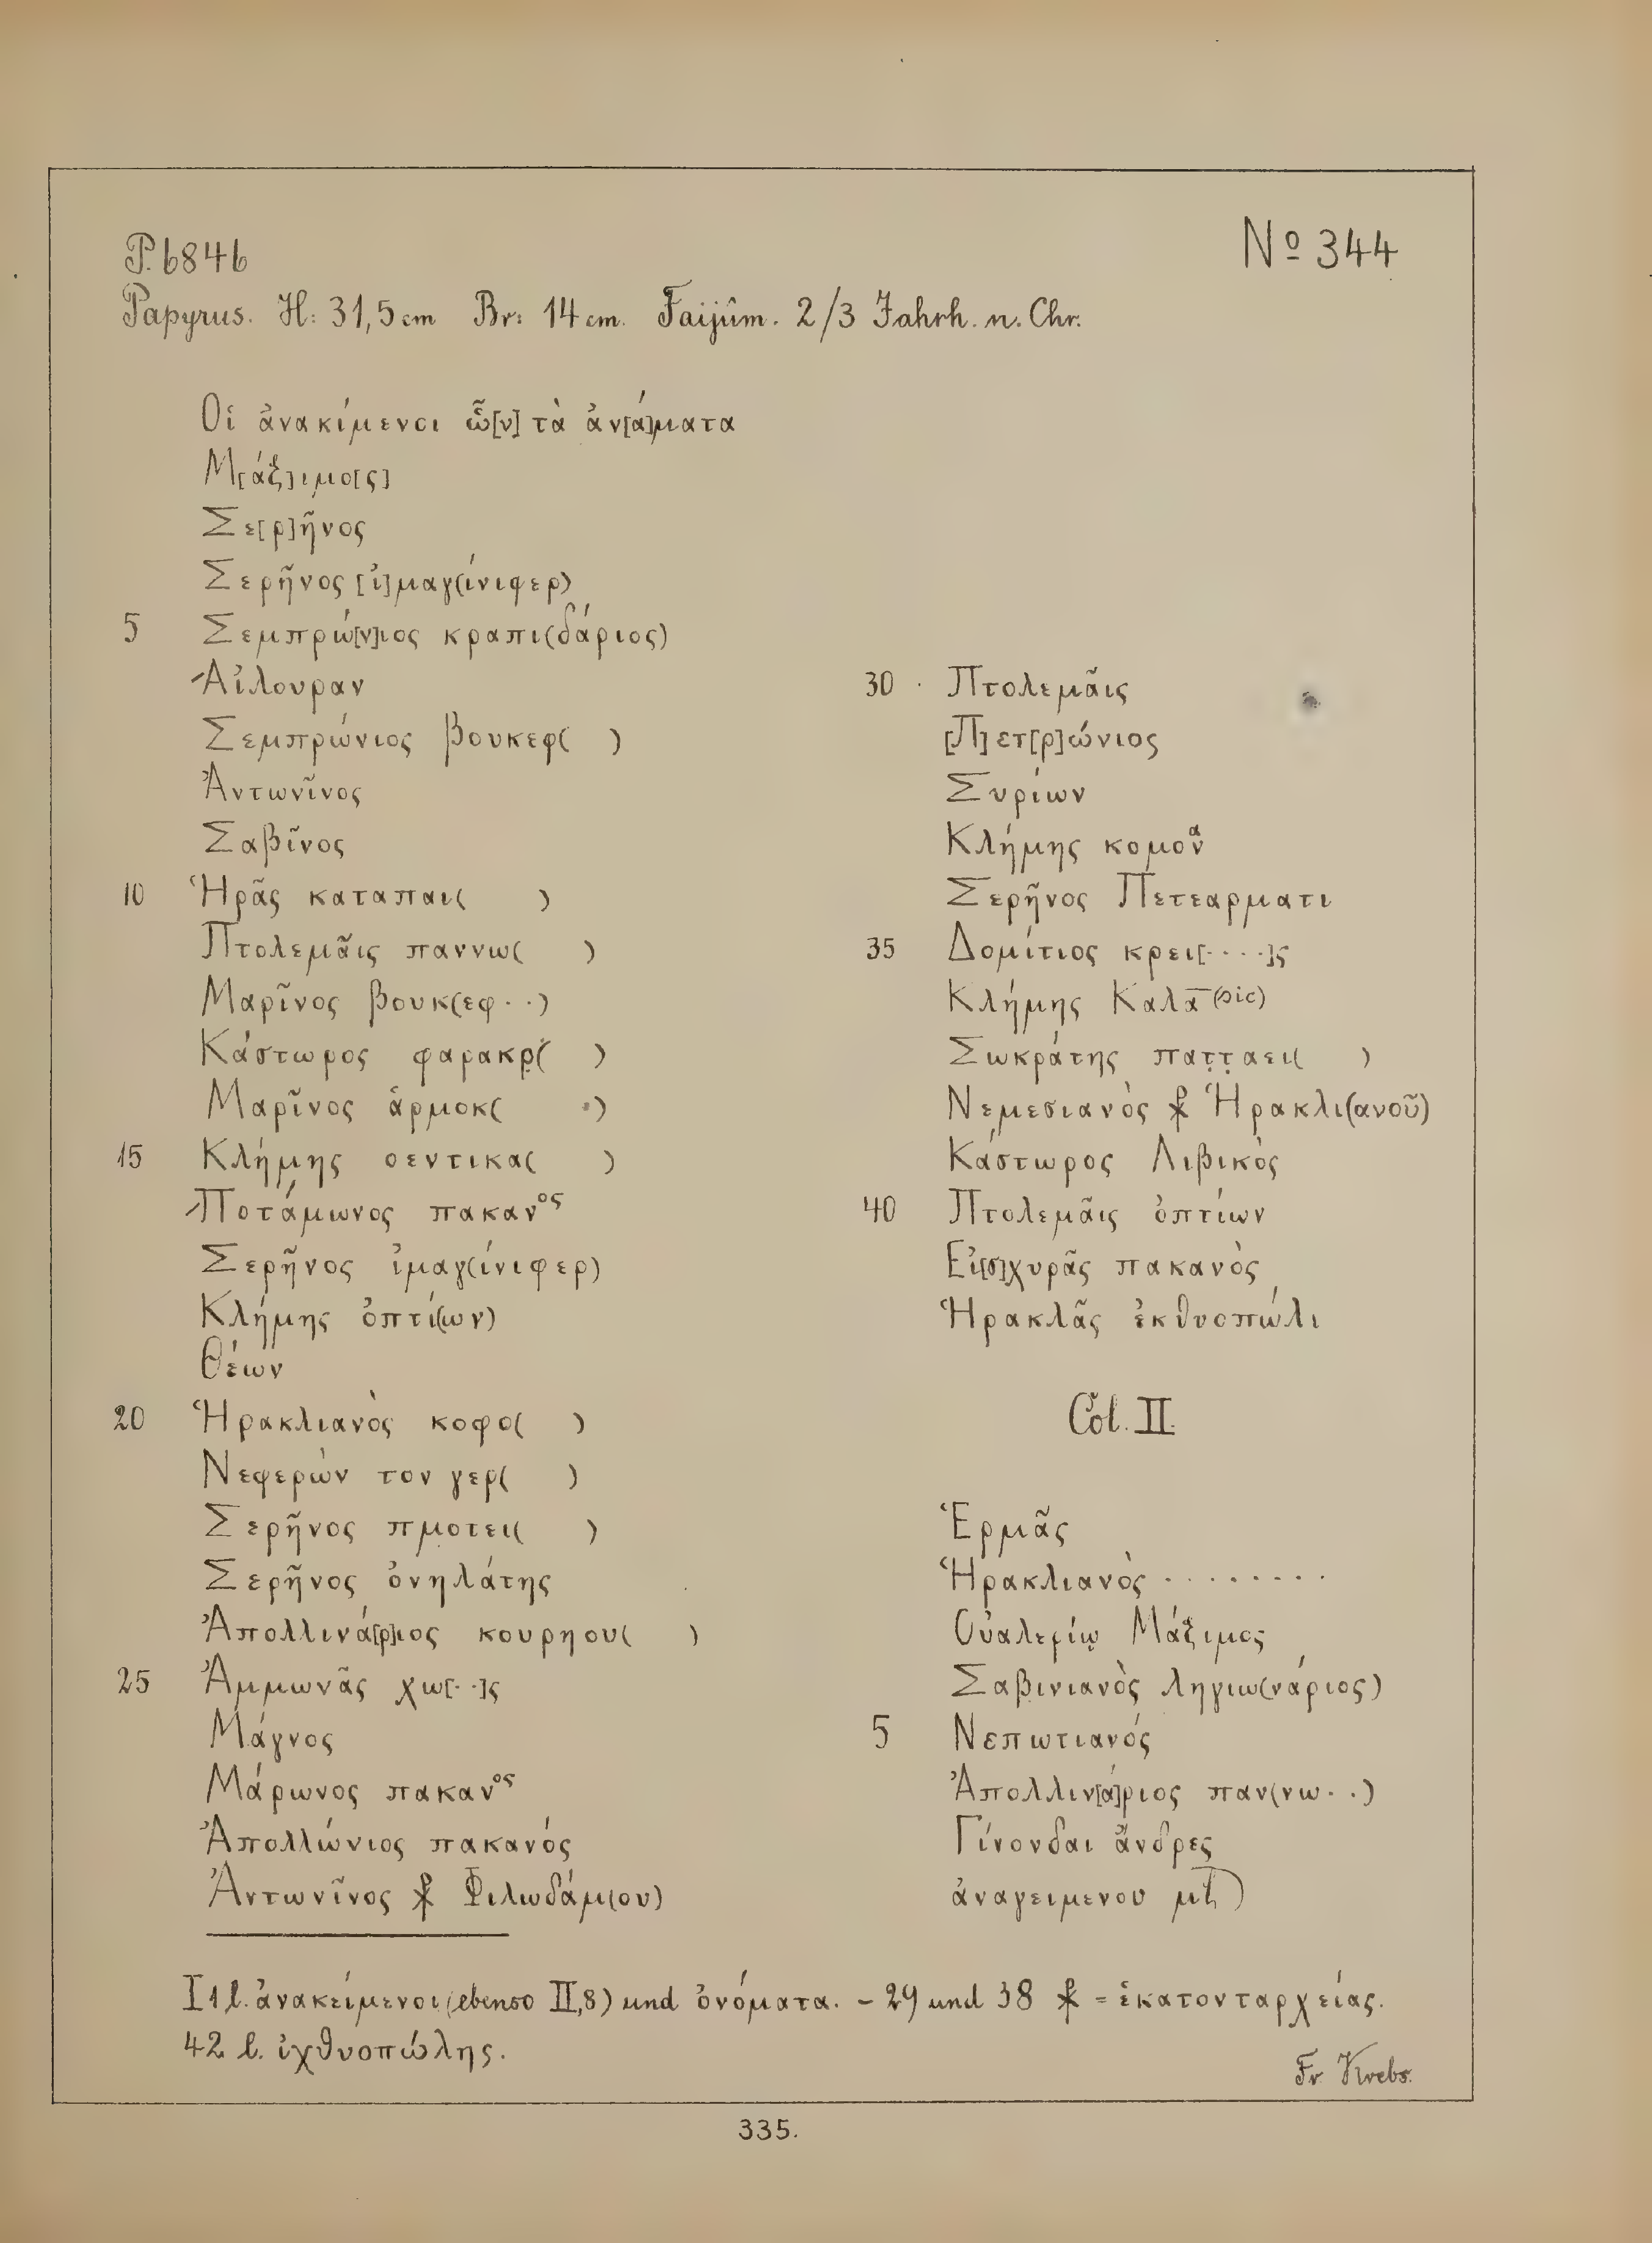 P. 6846
Nº 344
Papyrus. H: 31,5 cm Br: 14 cm. Faijûm. 2/3 Jahrh. n. Chr.
Οἱ ἀνακίμενοι ὧ[ν] τὰ ἀν[ά]ματα
Μ[άξ]ιμο[ς]
Σε[ρ]ῆνος
Σερῆνος [ἰ]μαγ(ίνιφερ)
5 Σεμπρώ[ν]ιος κραπι(δάριος)
Αἰλουραν
Σεμπρώνιος βουκεφ( )
Ἀντωνῖνος
Σαβῖνος
10 Ἡρᾶς καταπαι( )
Πτολεμᾶις παννω( )
Μαρῖνος βουκ(εφ··)
Κάστωρος φαρακρ̣( )
Μαρῖνος ἁρμοκ( )
15 Κλήμης οεντικα( )
Ποτάμωνος πακανος
Σερῆνος ἰμαγ(ίνιφερ)
Κλήμης ὀπτί(ων)
Θέων
20 Ἡρακλιανὸς κοφο( )
Νεφερὼν τον γερ( )
Σερῆνος πμοτει( )
Σερῆνος ὀνηλάτης
Ἀπολλινά[ρ]ιος κουρηου( )
25 Ἀμμωνᾶς χω[··]ς
Μάγνος
Μάρωνος πακανος
Ἀπολλώνιος πακανός
Ἀντωνῖνος ⳨ Φιλωδάμ(ου)
30 Πτολεμᾶις
[Π]ετ[ρ]ώνιος
Συρίων
Κλήμης κομονα
Σερῆνος Πετεαρματι
35 Δομίτιος κρει[····]ς
Κλήμης Καλᾱ (sic)
Σωκράτης πατ̣τ̣αει( )
Νεμεσιανὸς ⳨ Ἡρακλι(ανοῦ)
Κάστωρος Λιβικὸς
40 Πτολεμᾶις ὀπτίων
Εἰ[σ]χυρᾶς πακανὸς
Ἡρακλᾶς ἐκθυοπώλι
Col. II.
Ἑρμᾶς
Ἡρακλιανὸς ········
Οὐαλερίῳ Μάξιμος
Σαβινιανὸς ληγιω(νάριος)
5 Νεπωτιανός
Ἀπολλιν[ά]ριος παν(νω··)
Γίνονδαι ἄνδρες
ἀναγειμενου
I 1 l. ἀνακείμενοι (ebenso II, 8) und ὀνόματα. – 29 und 38 ⳨ = ἑκατονταρχείας.
42 l. ἰχθυοπώλης.
Fr. Krebs.
335.